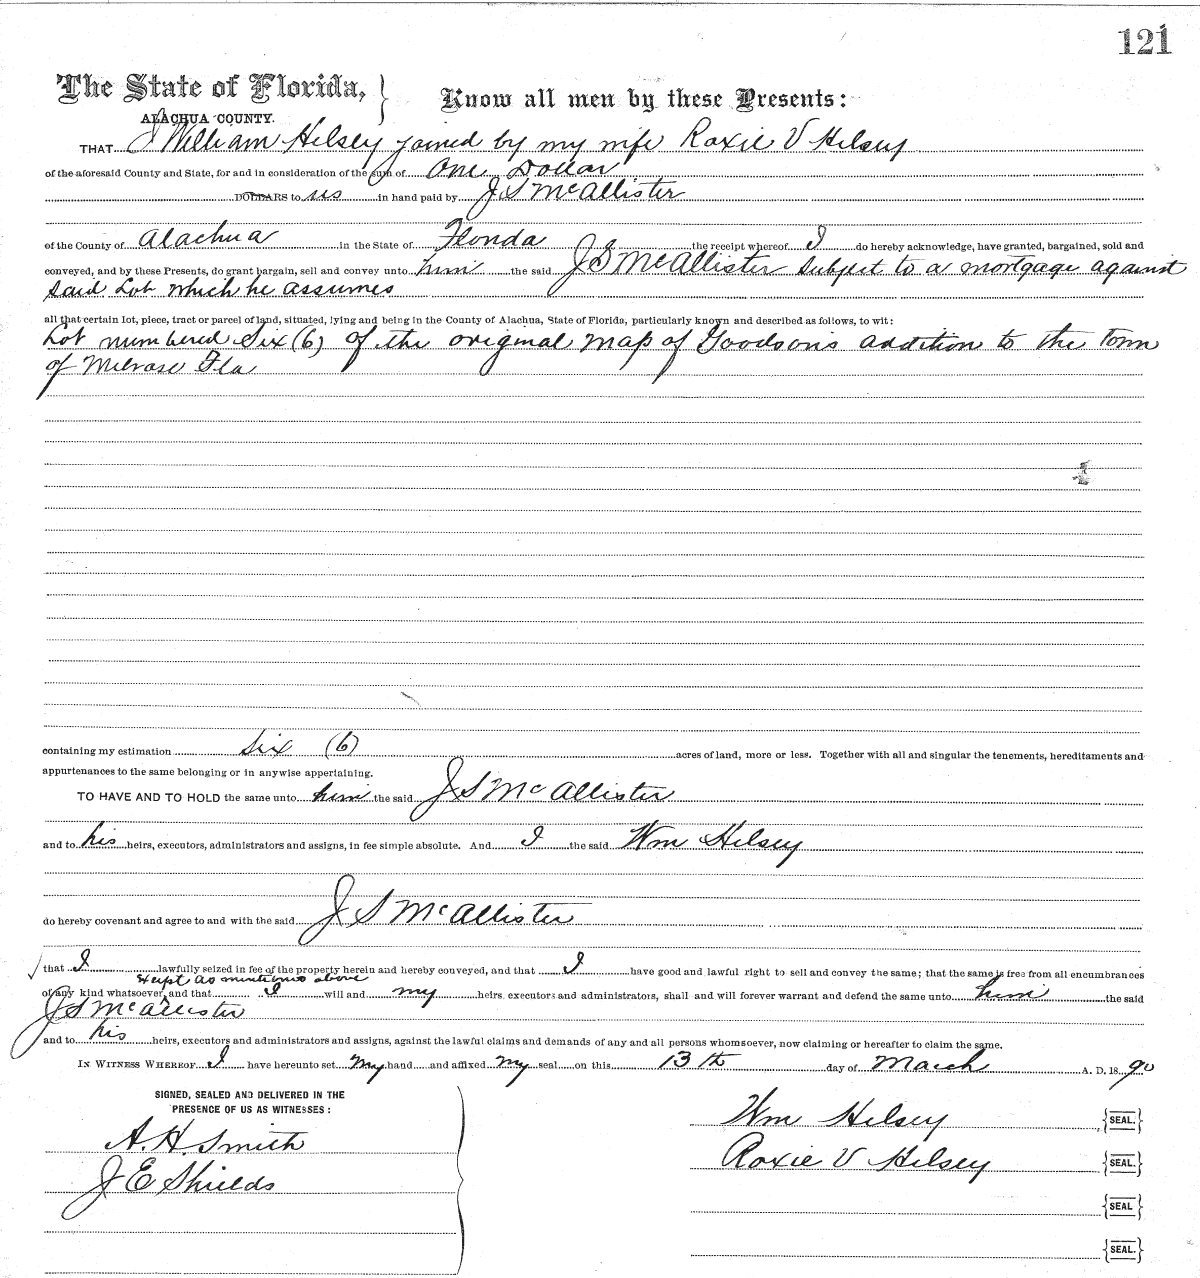 121
The State of Florida, } Know all men by these Presents:
ALACHUA COUNTY.
THAT I William Helsey joined by my wife Roxie V Helsey
of the aforesaid County and State, for and in consideration of the sum of One Dollar
DOLLARS to us in hand paid by J S McAllister
of the County of Alachua in the State of Florida the receipt whereof I do hereby acknowledge, have granted, bargained, sold and
conveyed, and by these Presents, do grant bargain, sell and convey unto him the said J S McAllister subject to a mortgage against
said Lot which he assumes
all that certain lot, piece, tract or parcel of land, situated, lying and being in the County of Alachua, State of Florida, particularly known and described as follows, to wit:
Lot numbered Six (6) of the original map of Goodsons addition to the Town
of Melrose Fla
containing my estimation Six (6) acres of land, more or less. Together with all and singular the tenements, hereditaments and
appurtenances to the same belonging or in anywise appertaining.
TO HAVE AND TO HOLD the same unto him the said J S McAllister
and to his heirs, executors, administrators and assigns, in fee simple absolute. And I the said Wm Helsey
do hereby covenant and agree to and with the said J S McAllister
that I lawfully seized in fee of the property herein and hereby conveyed, and that I have good and lawful right to sell and convey the same; that the same is free from all encumbrances
as above
of any kind whatsoever, and that I will and my heirs, executors and administrators, shall and will forever warrant and defend the same unto him the said
J S McAllister
and to his heirs, executors and administrators and assigns, against the lawful claims and demands of any and all persons whomsoever, now claiming or hereafter to claim the same.
IN WITNESS WHEREOF I have hereunto set my hand and affixed my seal on this 13th day of March A. D. 18 90
SIGNED, SEALED AND DELIVERED IN THE
PRESENCE OF US AS WITNESSES:
A. H. Smith
J E Shields
Wm Helsey {SEAL.}
Roxie V Helsey {SEAL.}
{SEAL}
{SEAL.}